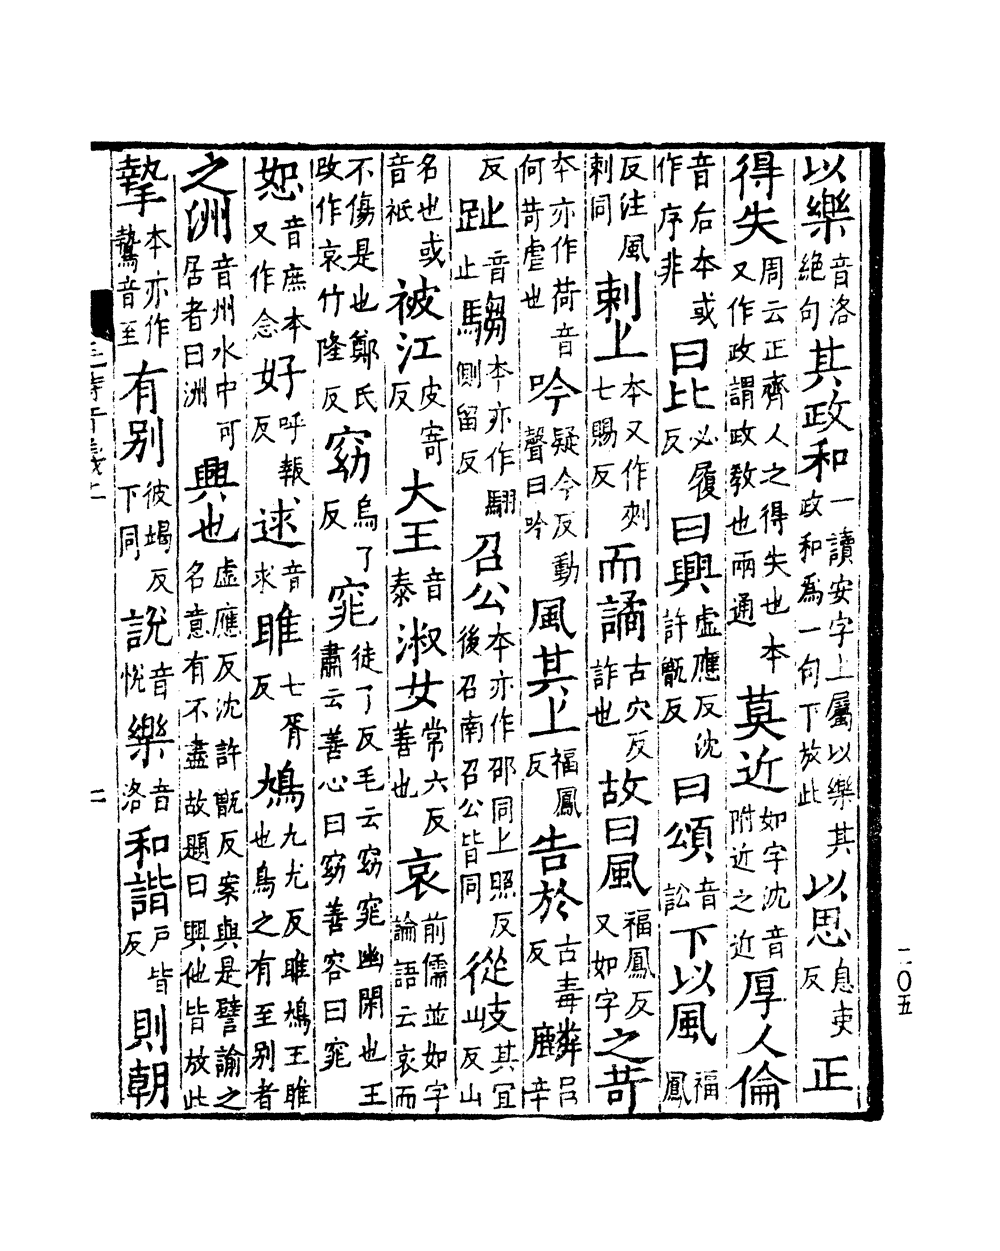 以樂音洛絕句其政和一讀安字上屬以樂其政和爲一句下放此以思息吏反正
得失周云正齊人之得失也本又作政謂政教也兩通莫近如字沈音附近之近厚人倫
音后本或作序非曰比必履反曰興虛應反沈許甑反曰頌音訟下以風福鳳
反注風刺同刺上本又作刾七賜反而譎古穴反詐也故曰風福鳳反又如字之苛
本亦作荷音何苛虐也吟疑今反動聲曰吟風其上福鳳反告於古毒反麟呂辛
反趾音止騶本亦作騶側留反召公本亦作邵同上照反後召南召公皆同從岐其宜反山
名也或音祇被江皮寄反大王音泰淑女常六反善也哀前儒並如字論語云哀而
不傷是也鄭氏改作哀竹隆反窈烏了反窕徒了反毛云窈窕幽閑也王肅云善心曰窈善容曰窕
恕音庶本又作念好呼報反逑音求雎七胥反鳩九尤反雎鳩王雎也鳥之有至別者
之洲音州水中可居者曰洲興也虛應反沈許甑反案興是譬諭之名意有不盡故題曰興他皆放此
摯本亦作鷙音至有別彼竭反下同說音悅樂音洛和諧戶皆反則朝
二
一〇五